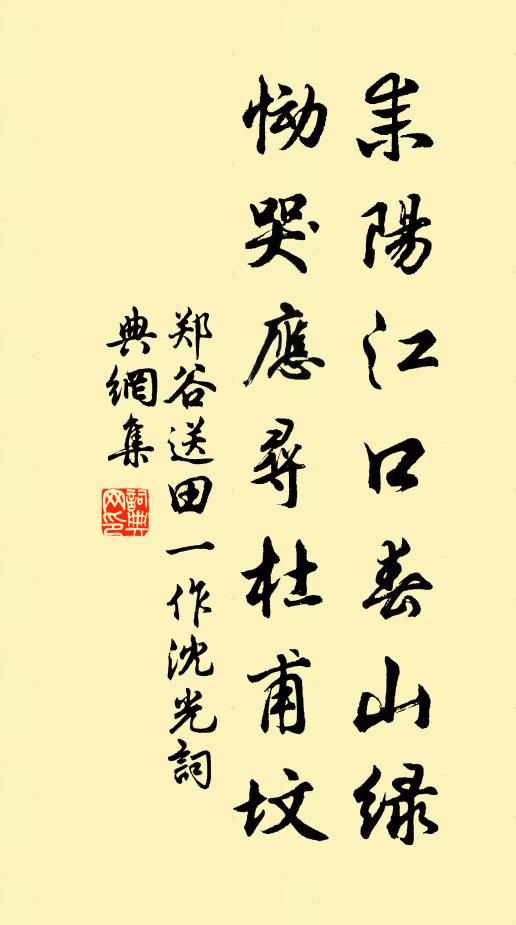 耒陽江口春山緑
慟哭應尋杜甫墳
郑谷送田一作沈光詞
典網集
詞典網印